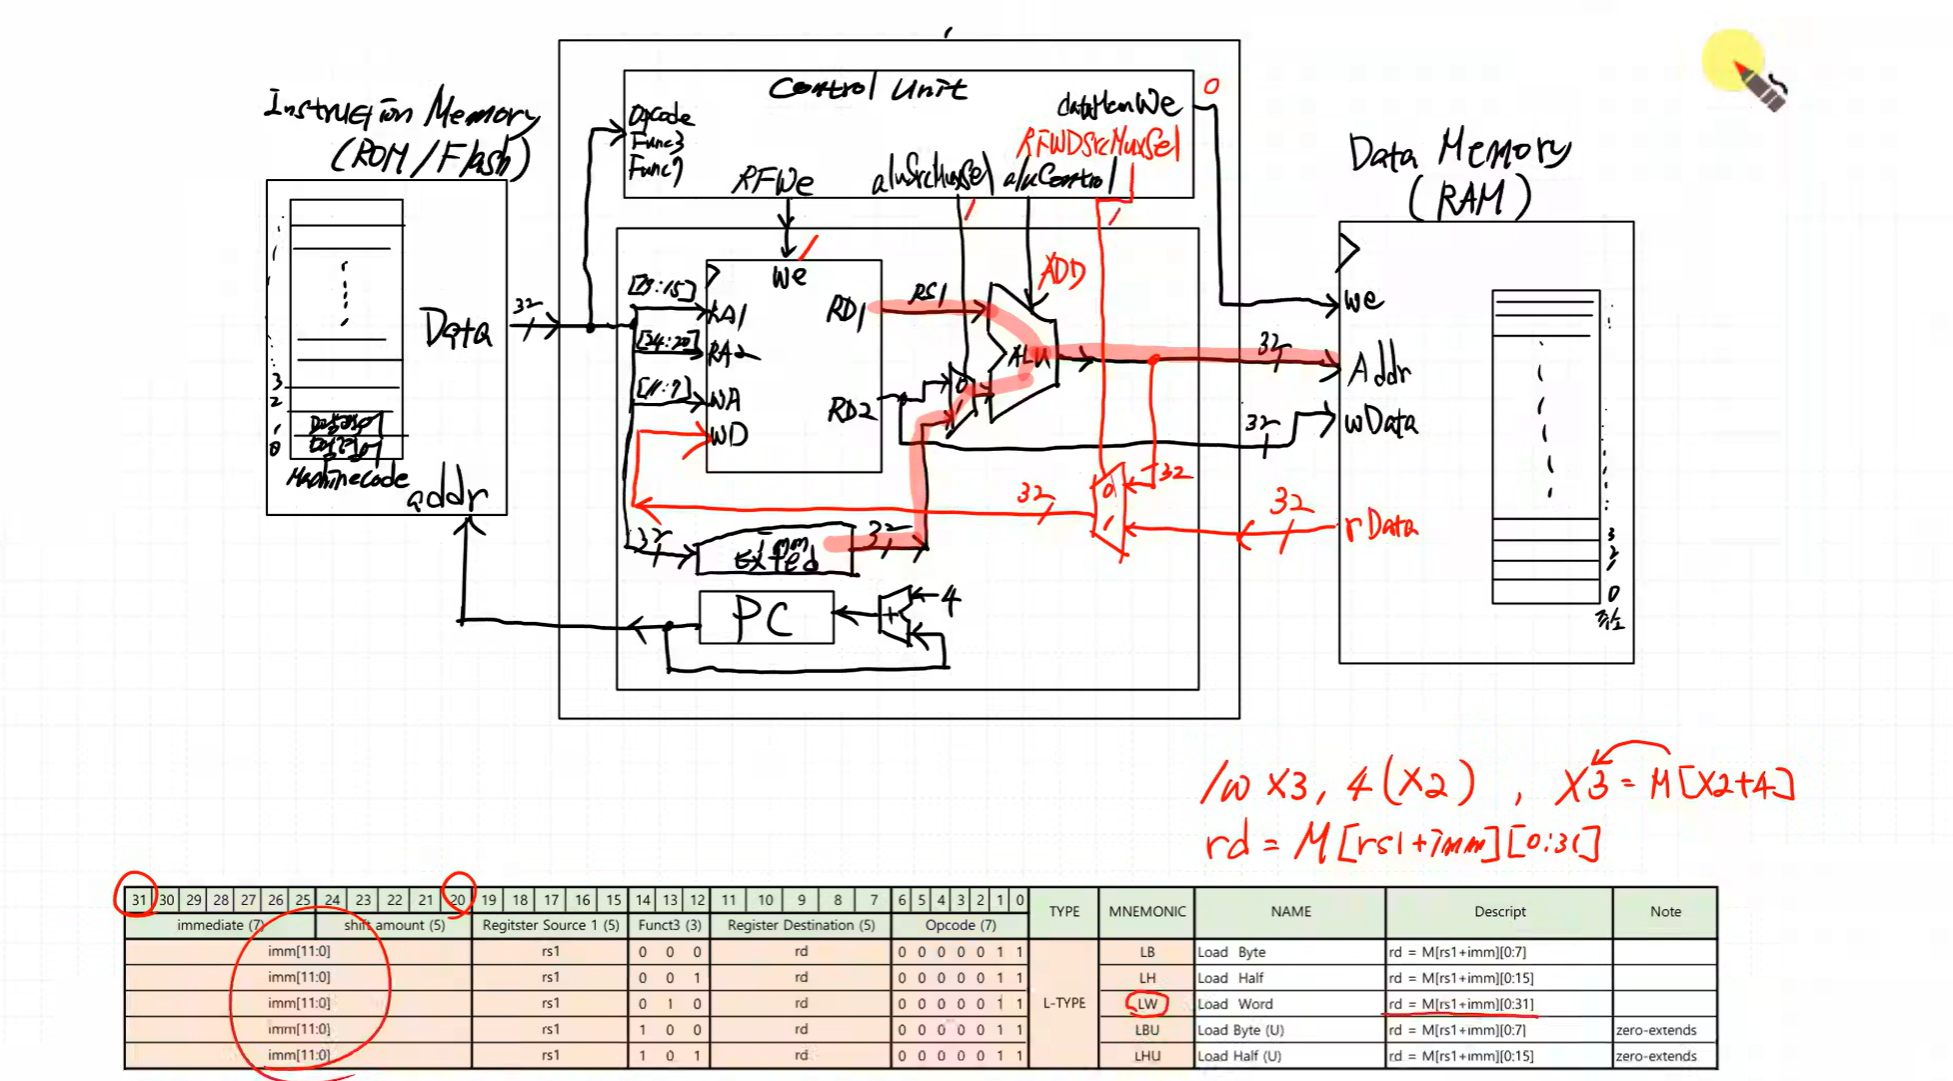 Control Unit
Instruction Memory
(ROM/Flash)
Opcode
Func3
Func7
dataMemWe
0
RFWDSrcMuxSel
RFWe
aluSrcMuxSel
aluControl
Data Memory
(RAM)
we
ADD
[19:15]
RA1
RD1
RS1
[24:20]
RA2
ALU
Data
32
we
32
Addr
[11:7]
WA
RD2
0
1
WD
32
wData
3
2
1
0
MachineCode
addr
32
0
1
32
32
rData
32
imm
exted
32
3
2
1
0
PC
+
4
lw X3, 4(X2) , X3 = M[X2+4]
rd = M[rs1+imm][0:31]
31 30 29 28 27 26 25 24 23 22 21 20 19 18 17 16 15 14 13 12 11 10 9 8 7 6 5 4 3 2 1 0 TYPE MNEMONIC NAME Descript Note
immediate (7) shift amount (5) Regitster Source 1 (5) Funct3 (3) Register Destination (5) Opcode (7)
imm[11:0] rs1 0 0 0 rd 0 0 0 0 0 1 1 LB Load Byte rd = M[rs1+imm][0:7]
imm[11:0] rs1 0 0 1 rd 0 0 0 0 0 1 1 LH Load Half rd = M[rs1+imm][0:15]
imm[11:0] rs1 0 1 0 rd 0 0 0 0 0 1 1 L-TYPE LW Load Word rd = M[rs1+imm][0:31]
imm[11:0] rs1 1 0 0 rd 0 0 0 0 0 1 1 LBU Load Byte (U) rd = M[rs1+imm][0:7] zero-extends
imm[11:0] rs1 1 0 1 rd 0 0 0 0 0 1 1 LHU Load Half (U) rd = M[rs1+imm][0:15] zero-extends